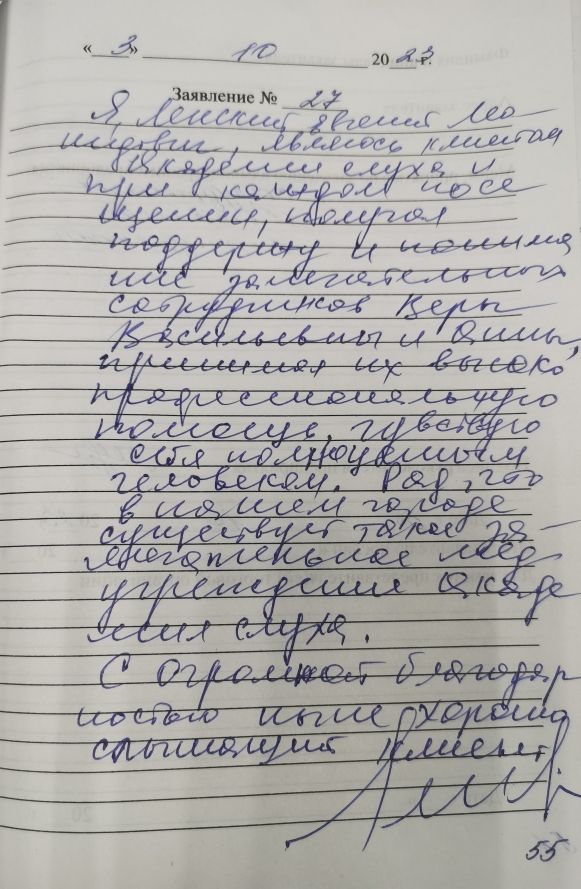 « 3 » 10 20 23 г.
Заявление № 27
Я, Ленский Евгений Лео-
нидович, являюсь клиентом
Академии слуха и
при каждом посе
щении, получая
поддержку и понима
ние замечательных
сотрудников Веры
Васильевны и Анны,
принимая их высоко
профессиональную
помощь, чувствую
себя полноценным
человеком. Рад, что
в нашем городе
существует такое за-
мечательное мед
учреждение Акаде
мия слуха.
С огромной благодар
ностью ныне хорошо
слышащий клиент
55